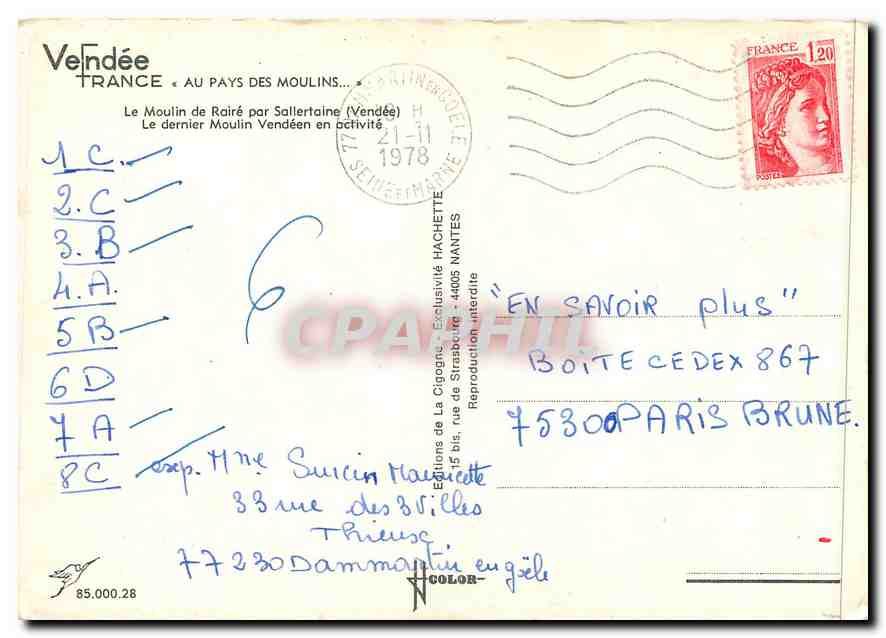 Vendée
FRANCE « AU PAYS DES MOULINS... »
Le Moulin de Rairé par Sallertaine (Vendée)
Le dernier Moulin Vendéen en activité
1 C.
2. C
3. B
4. A.
5 B
6 D
7 A
8 C
6
exp. Mme Suicin Mauricette
33 rue des 3 Villes
Thieux
77230 Dammartin en goële
85.000.28
COLOR
Editions de La Cigogne - Exclusivité HACHETTE
15 bis, rue de Strasbourg - 44005 NANTES
Reproduction interdite
77 DAMMARTIN EN GOELE
18 H
21-11
1978
SEINE ET MARNE
FRANCE 1,20
POSTES
"EN SAVOIR plus"
BOITE CEDEX 867
75300 PARIS BRUNE.
CPARHIL